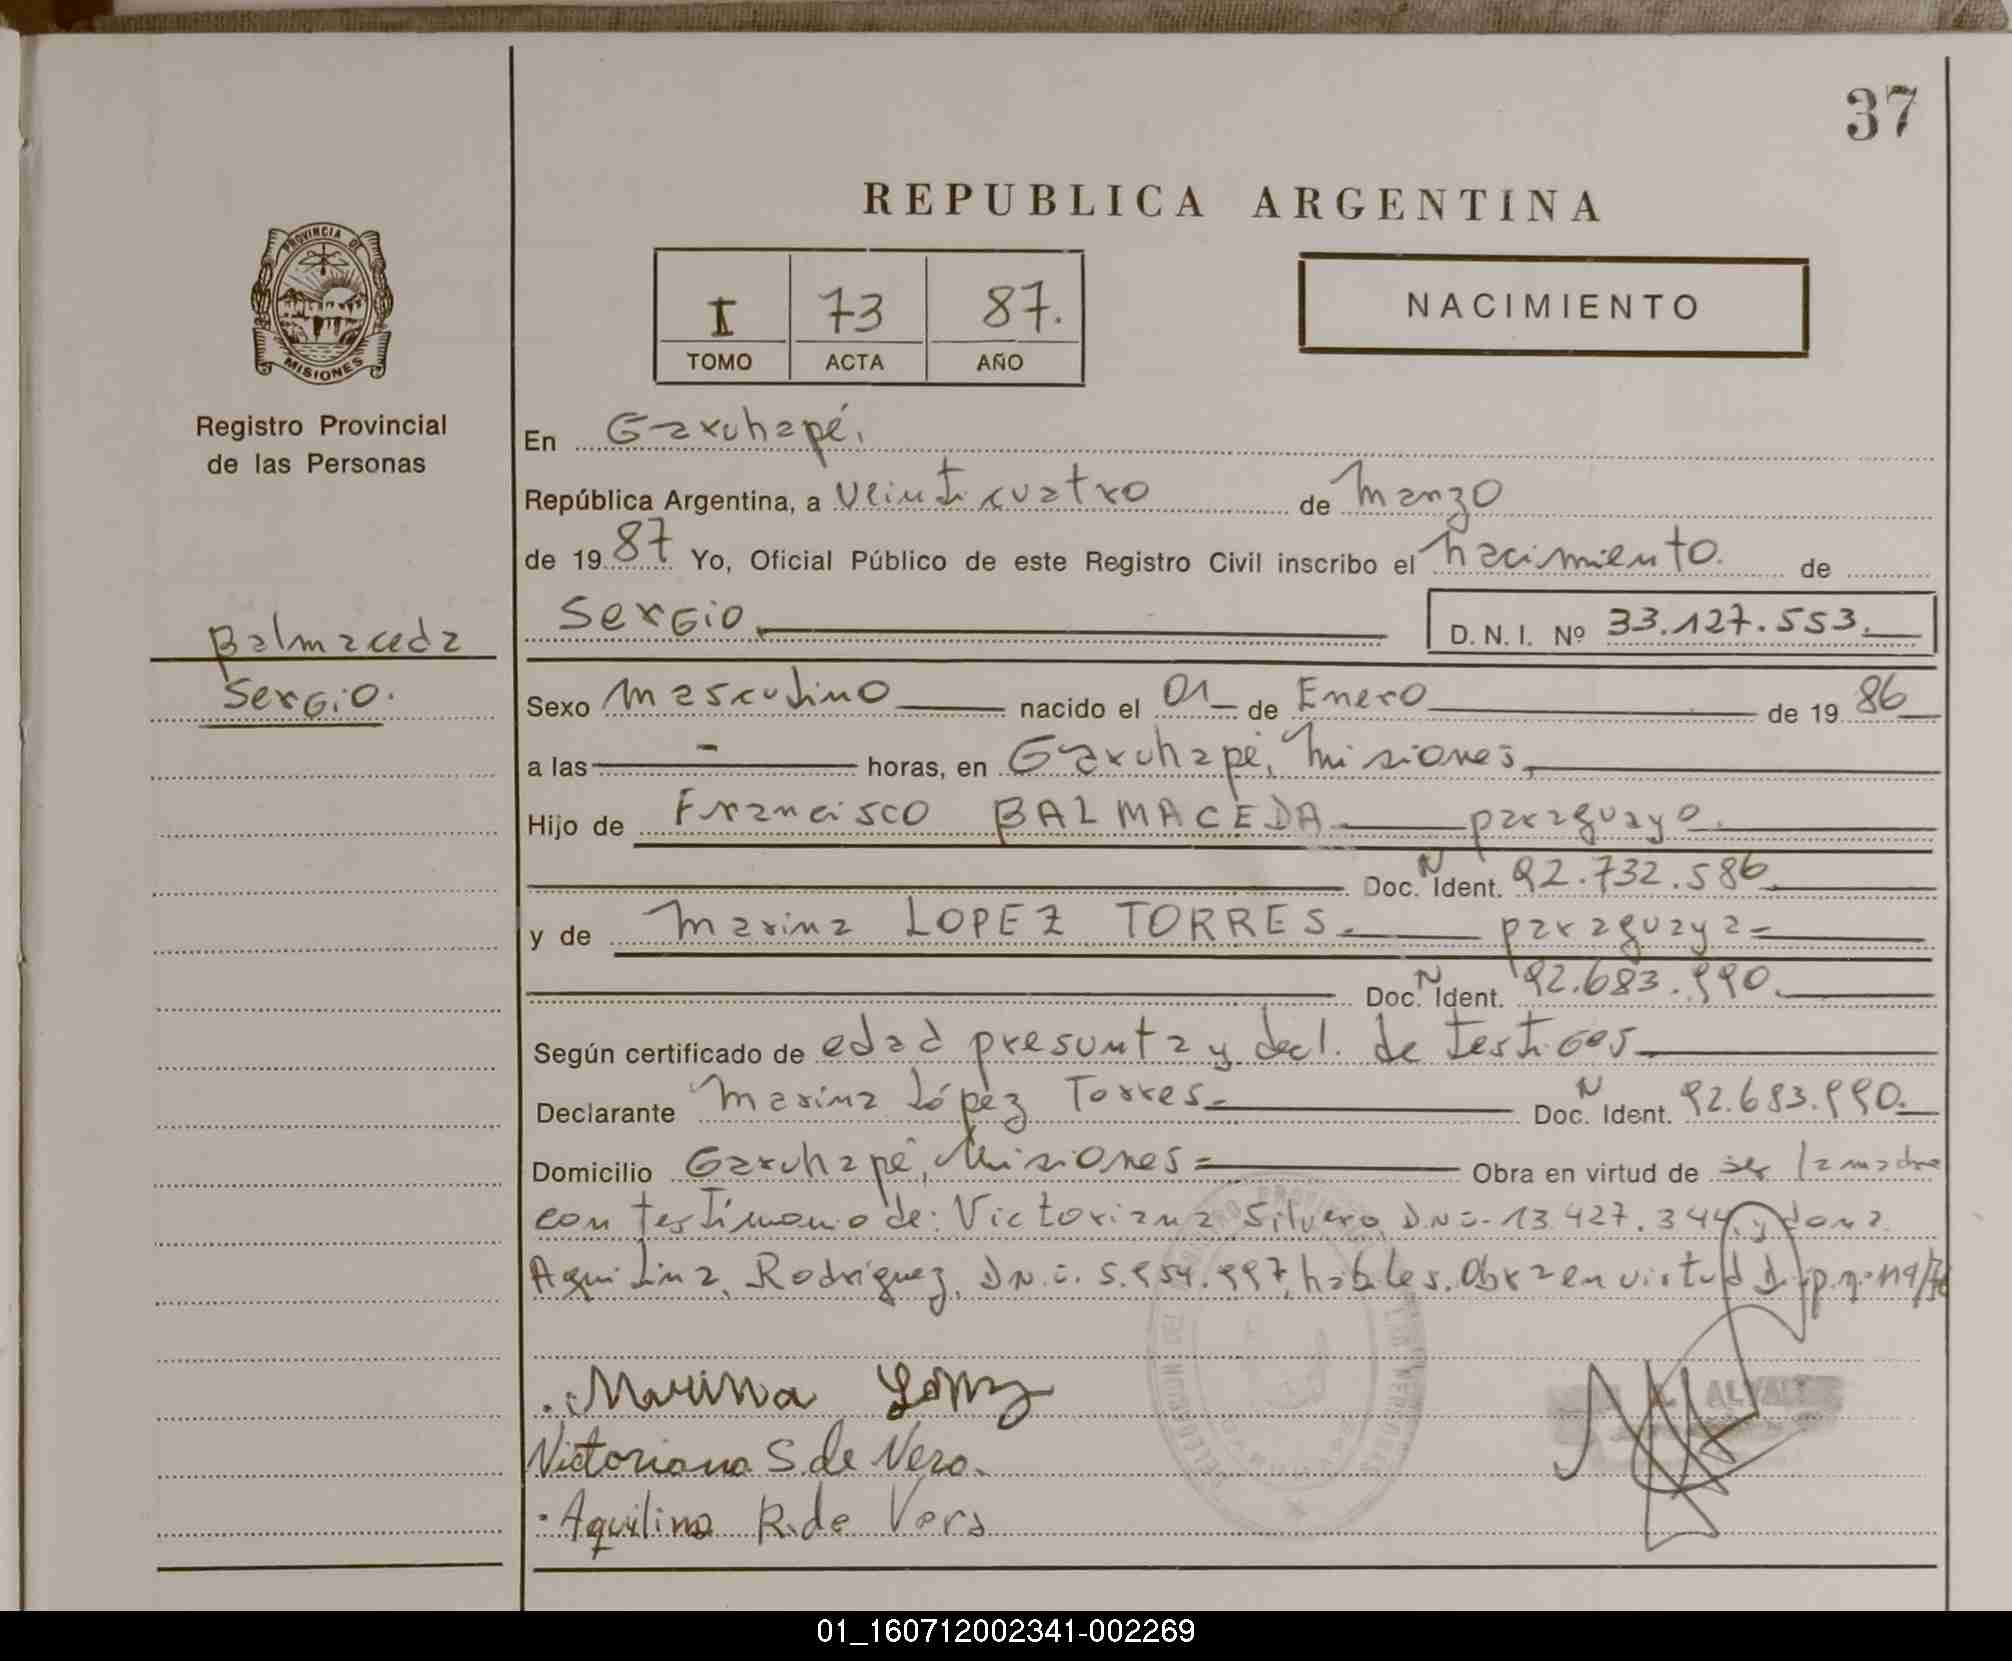 37
REPUBLICA ARGENTINA
PROVINCIA DE
MISIONES
Registro Provincial
de las Personas
I 73 87.
TOMO ACTA AÑO
NACIMIENTO
En Garuhapé,
República Argentina, a veinticuatro de Marzo
de 19 87 Yo, Oficial Público de este Registro Civil inscribo el nacimiento. de
Sergio D. N. I. Nº 33.127.553.
Balmaceda
Sergio.
Sexo Masculino nacido el 01 de Enero de 19 86
a las - horas, en Garuhapé, Misiones,
Hijo de Francisco BALMACEDA paraguayo.
Doc. N Ident. 92.732.586.
y de Marina LOPEZ TORRES. paraguaya
Doc. N Ident. 92.683.990.
Según certificado de edad presunta y decl. de testigos
Declarante Marina López Torres Doc. N Ident. 92.683.990.
Domicilio Garuhapé, Misiones= Obra en virtud de ser la madre
con testimonio de: Victoriana Silvero, D.N.i. 13.427.344, y dona
Aquilina, Rodríguez, D.N.i. 5.954.997, hábiles. Obra en virtud
Marina López
Victoriana S. de Vero.
Aquilina R. de Vera
01_160712002341-002269